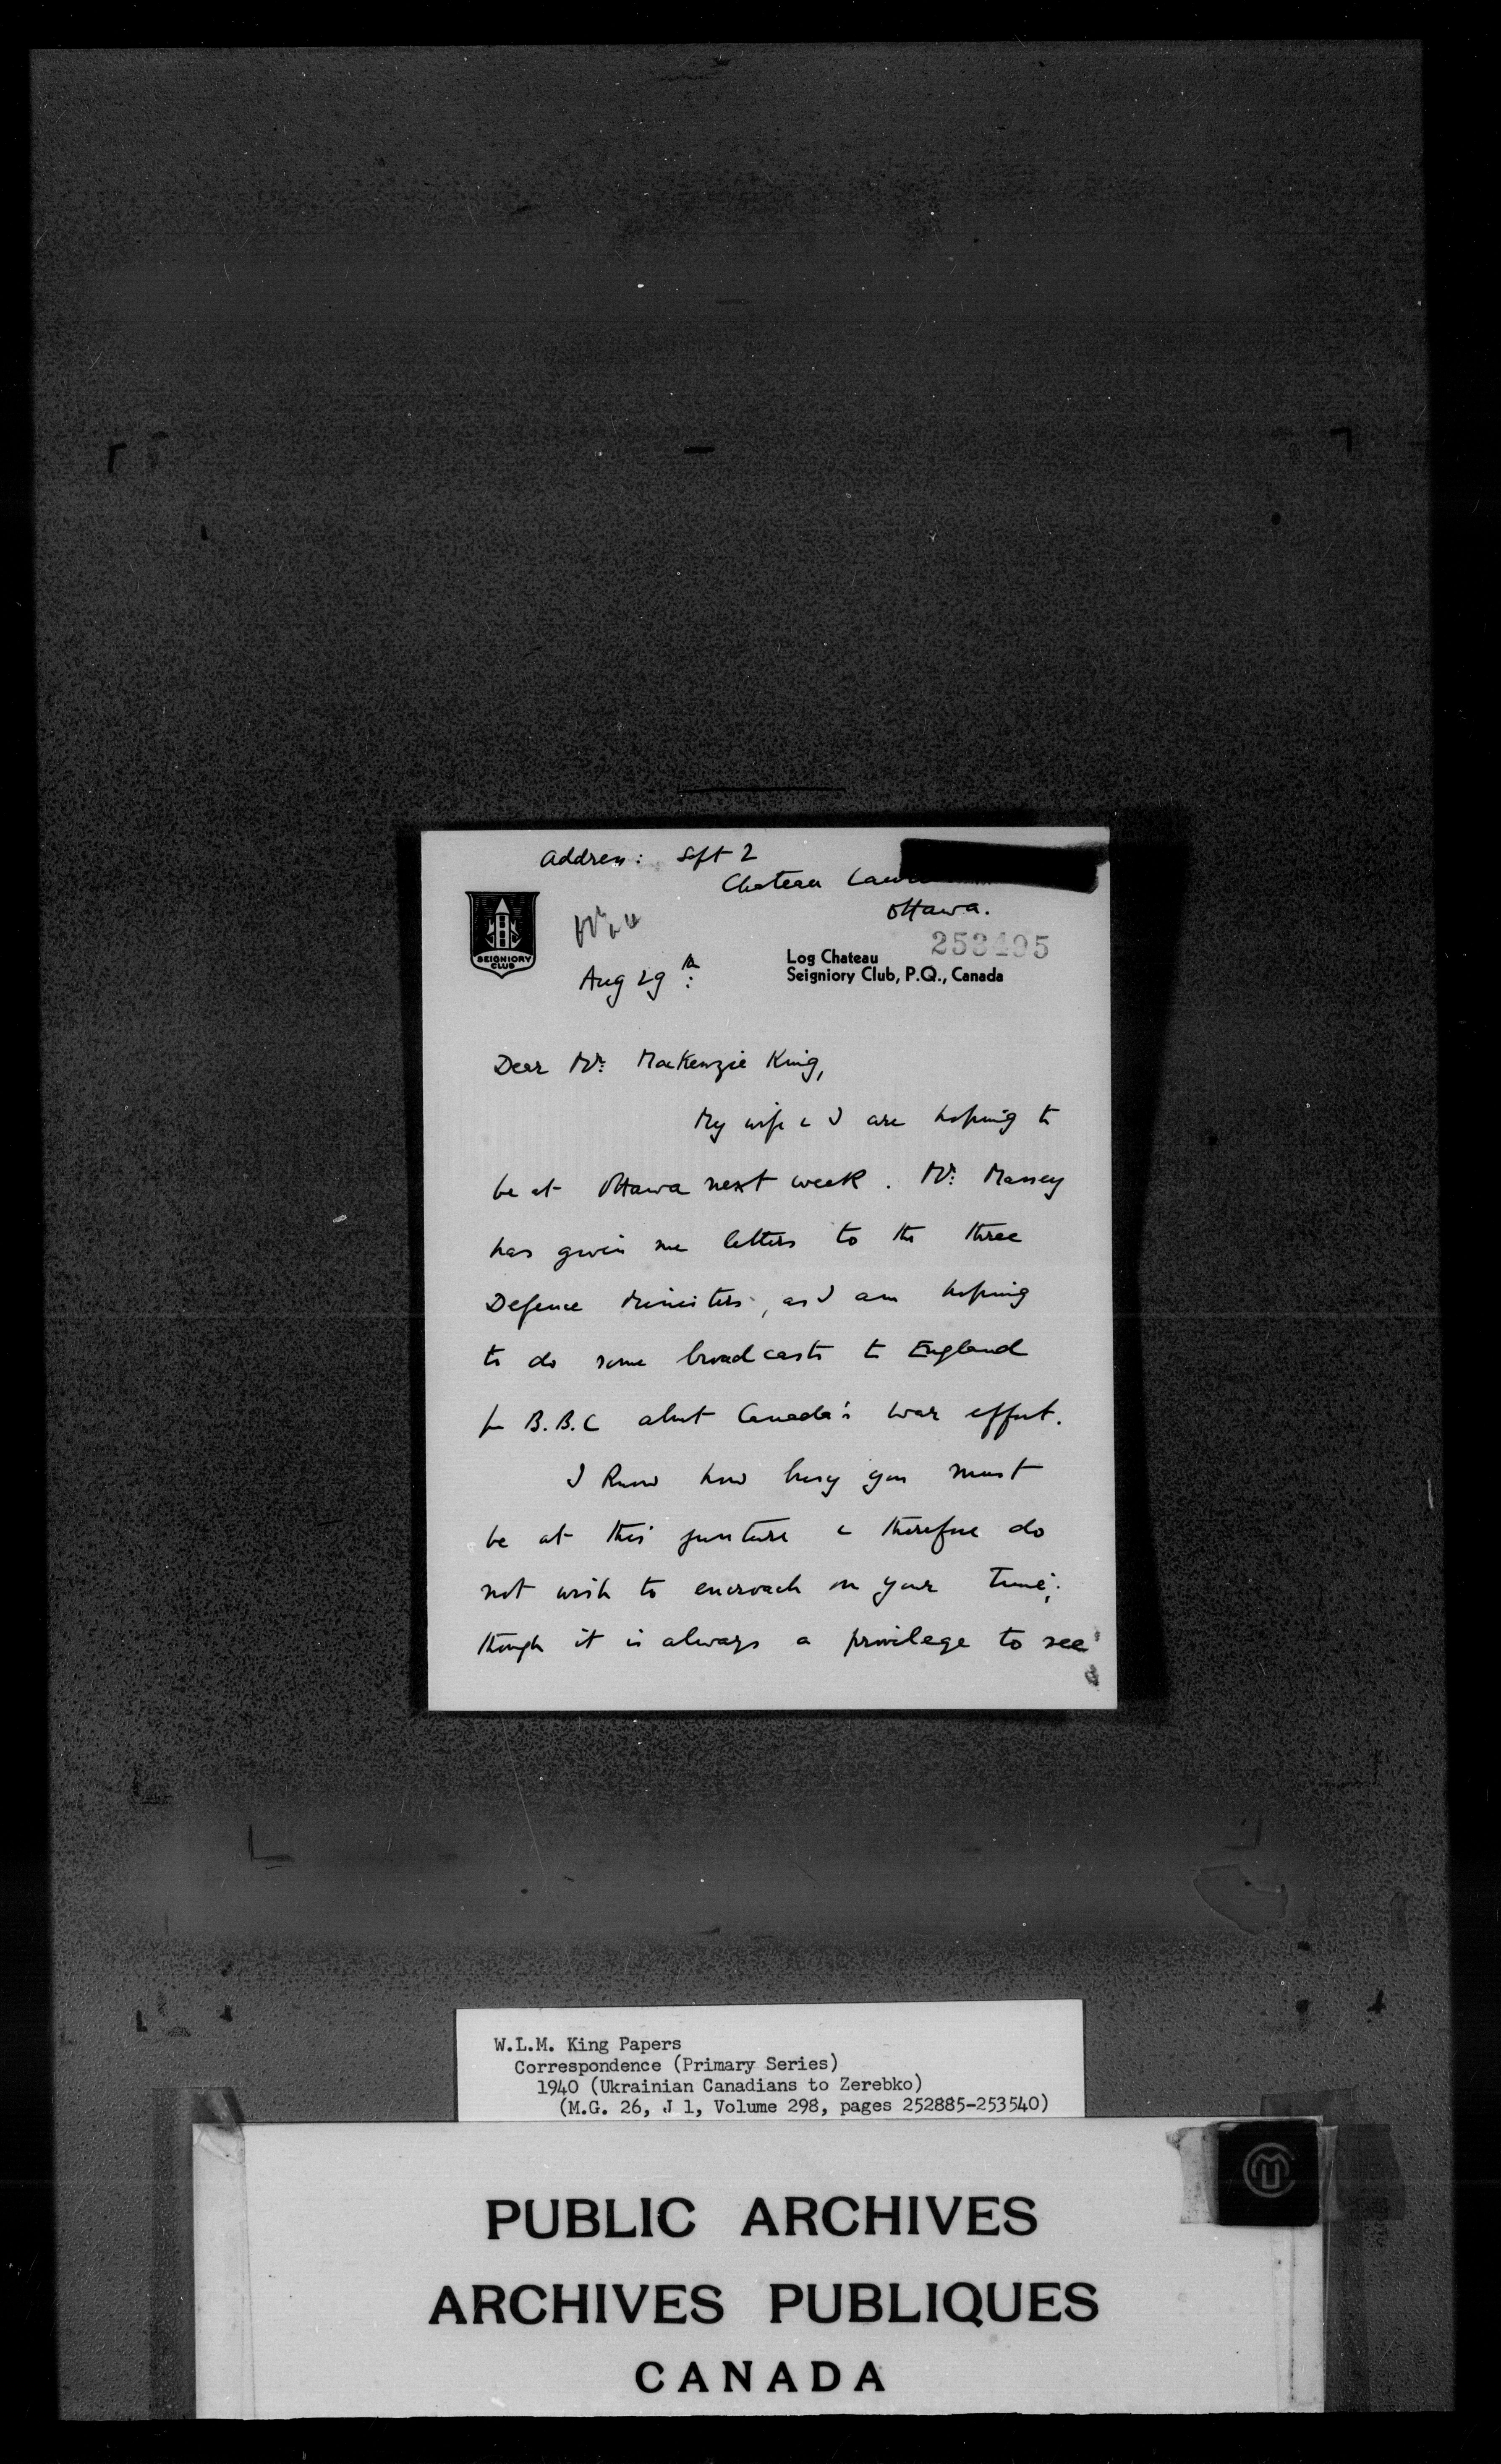 Address: Sept 2
Chateau Lau
Ottawa.
SEIGNIORY
CLUB
253495
Log Chateau
Aug 29th
Seigniory Club, P.Q., Canada
Dear Mr. MacKenzie King,
My wife & I are hoping to
be at Ottawa next week. Mr. Massey
has given me letters to the three
Defence Ministers, as I am hoping
to do some broadcasts to England
for B.B.C about Canada's war effort.
I know how busy you must
be at this juncture & therefore do
not wish to encroach on your time;
though it is always a privilege to see
W.L.M. King Papers
Correspondence (Primary Series)
1940 (Ukrainian Canadians to Zerebko)
(M.G. 26, J 1, Volume 298, pages 252885-253540)
PUBLIC ARCHIVES
ARCHIVES PUBLIQUES
CANADA